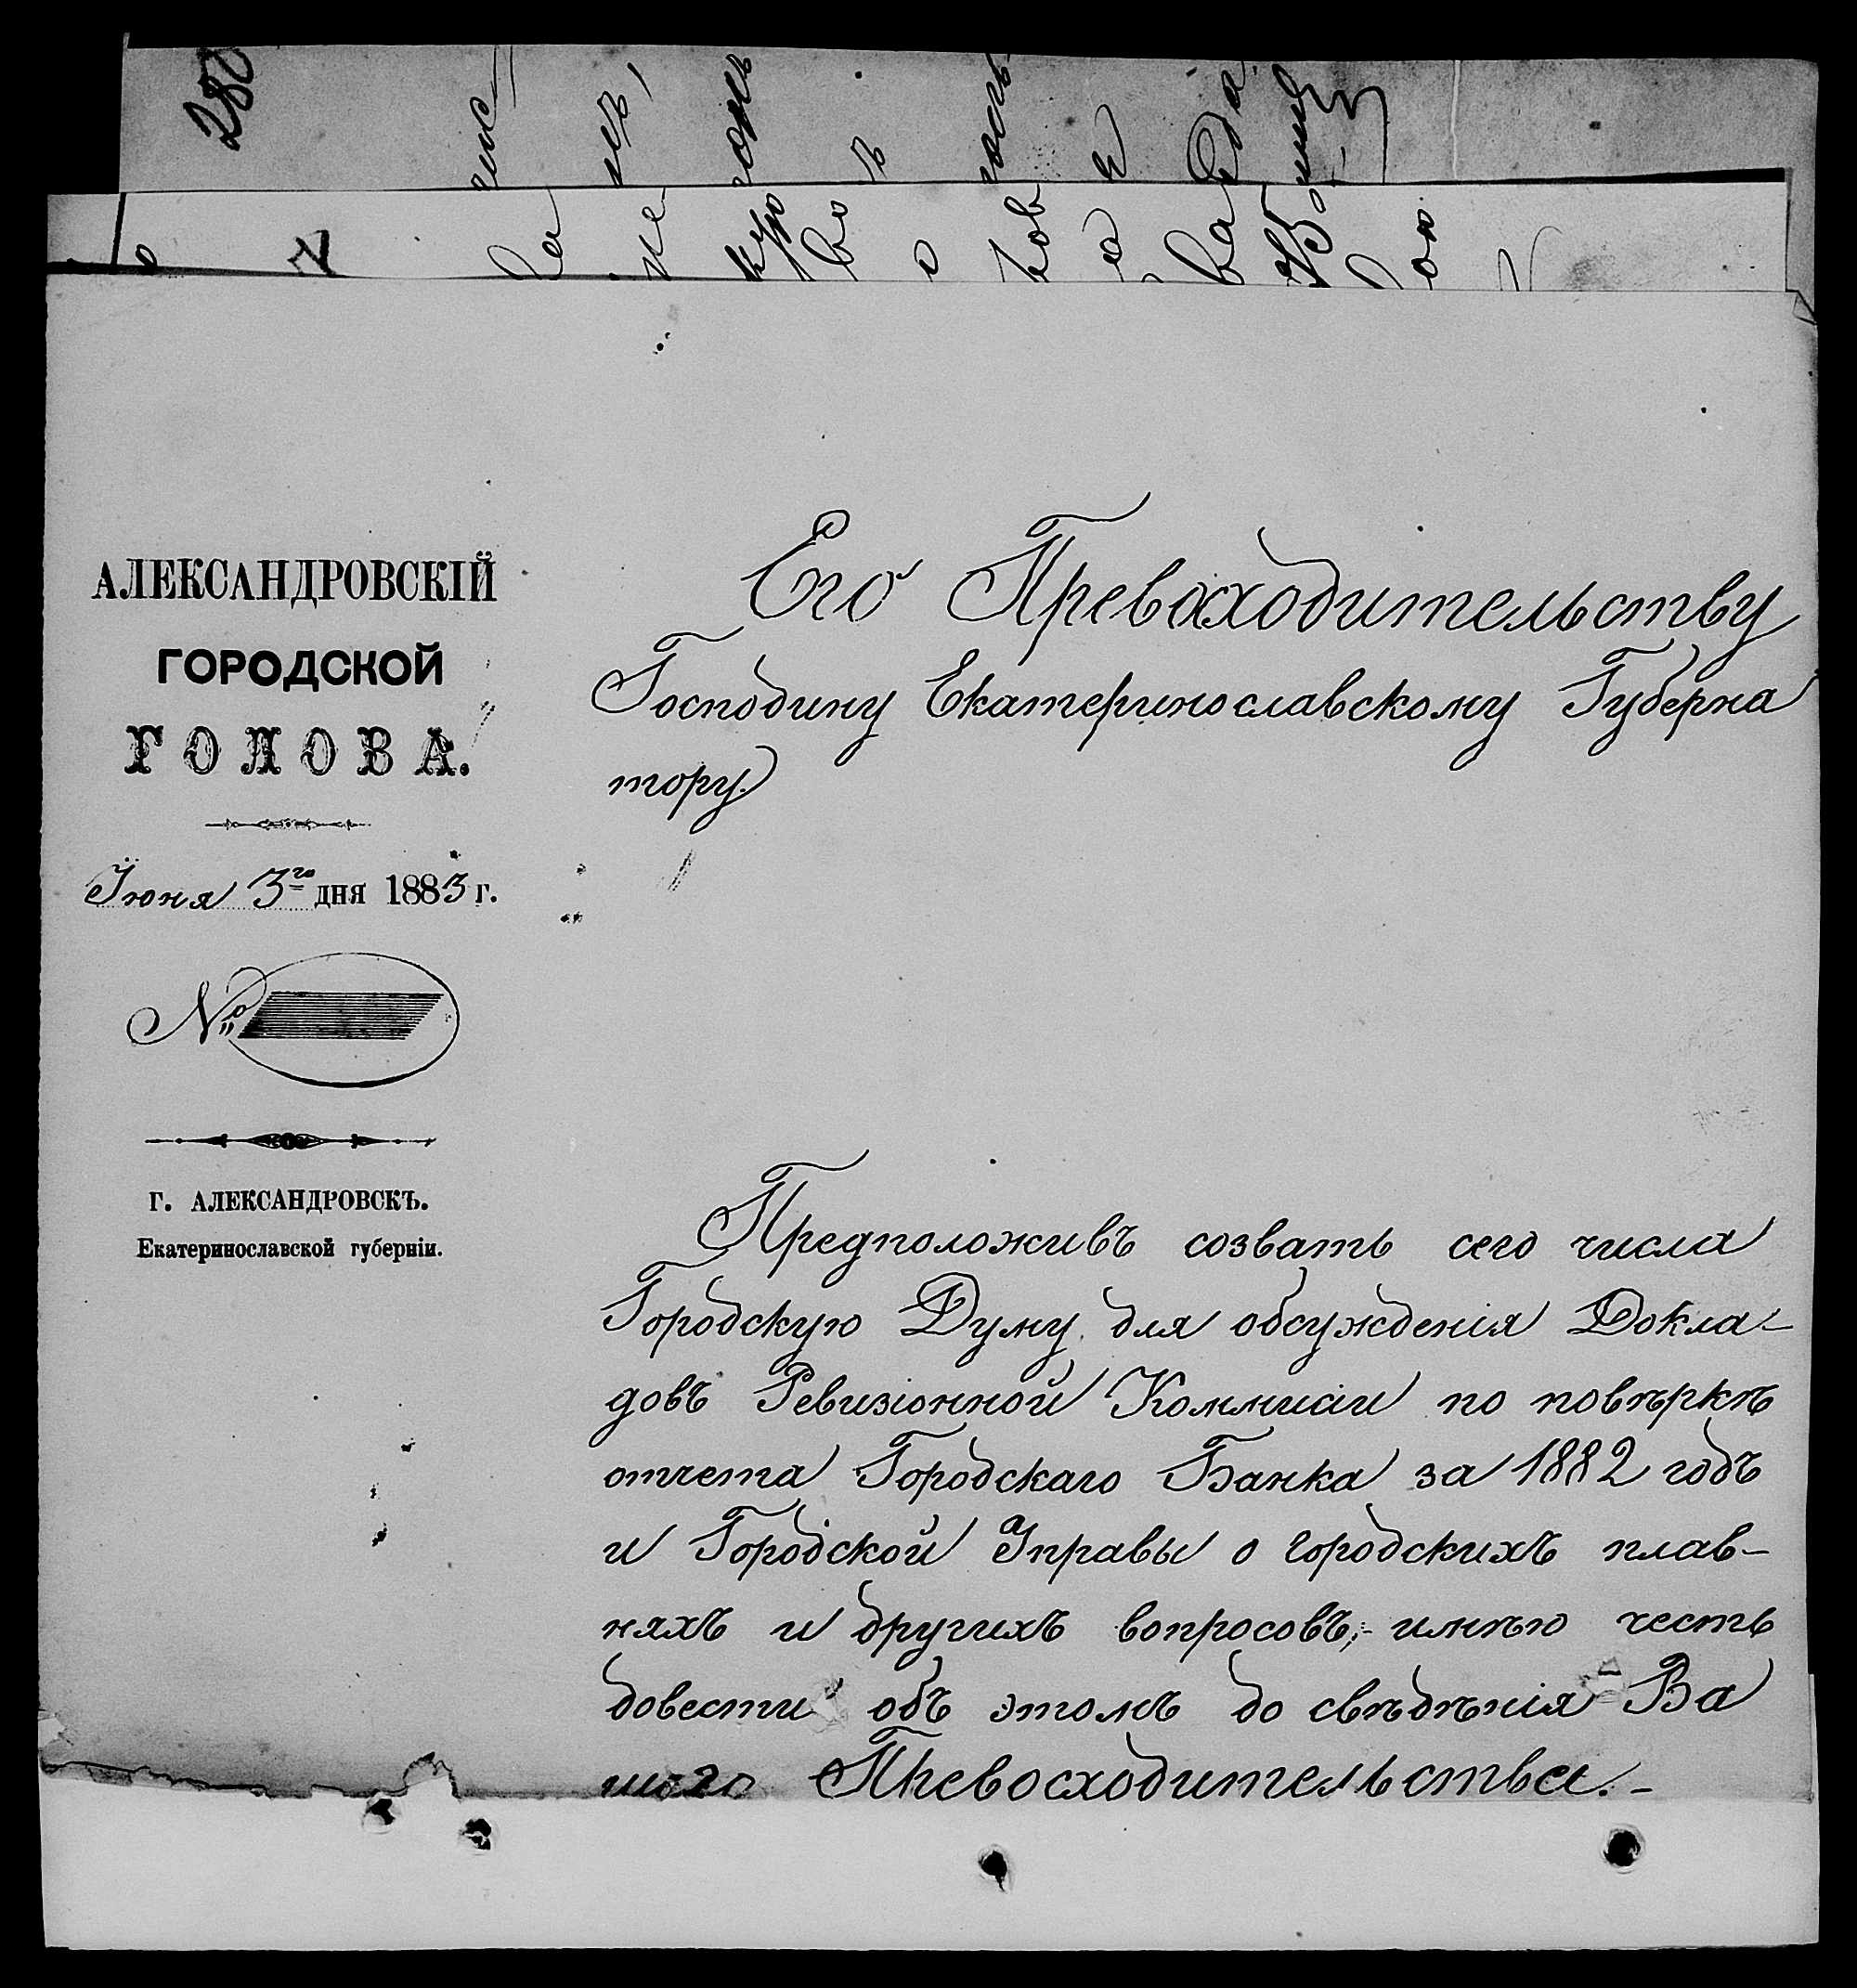 280
АЛЕКСАНДРОВСКІЙ
ГОРОДСКОЙ
ГОЛОВА.
Іюня 3го дня 1883 г.
№
Г. АЛЕКСАНДРОВСКЪ.
Екатеринославской губерніи.
Его Превосходительству
Господину Екатеринославскому Губерна
тору.
Предположивъ созвать сего числа
Городскую Думу для обсужденія Докла-
довъ Ревизіонной Коммисіи по повѣркѣ
отчета Городскаго Банка за 1882 годъ
и Городской Управы о городскихъ плав-
няхъ и другихъ вопросовъ,- имѣю честь
довести объ этомъ до свѣдѣнія Ва
шего Превосходительства.-